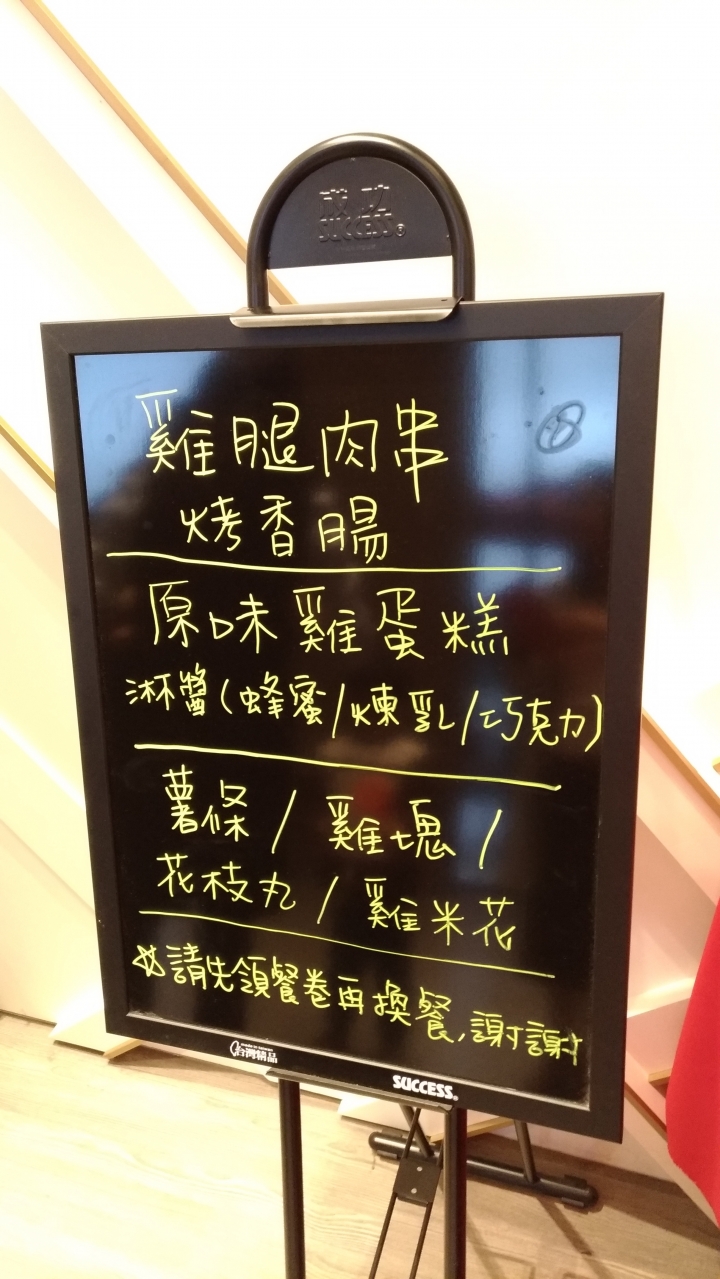 成功
SUCCESS®
8
雞腿肉串
烤香腸
原味雞蛋糕
淋醬(蜂蜜/煉乳/巧克力)
薯條/雞塊/
花枝丸/雞米花
☆請先領餐卷再換餐,謝謝
台灣精品
SUCCESS®